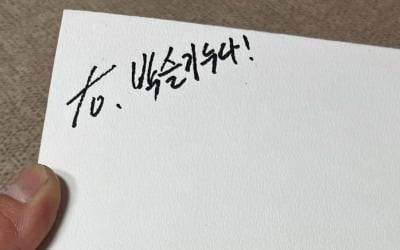 to. 박슬기누나!